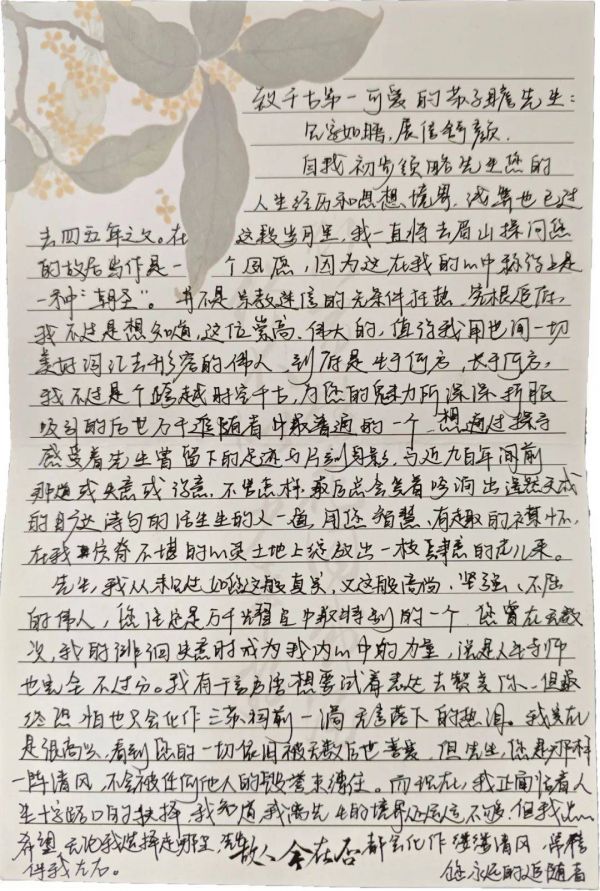 致千古第一可爱的苏子瞻先生：
见字如晤，展信舒颜。
自我初次领略先生您的
人生经历和思想境界，浅算也已过
去四五年之久。在 这数岁月里，我一直将去眉山探问您
的故居当作是一 个夙愿，因为这在我的心中称得上是
一种“朝圣”。并不是宗教迷信的无条件狂热，究根追底，
我不过是想知道，这位崇高、伟大的，值得我用世间一切
美好词汇去形容的伟人，到底是生于何方，长于何方，
我不过是个跨越时空千古，为您的魅力所深深折服
吸引的后世万千追随者中最普通的一个，想通过探寻
感受着先生曾留下的足迹与片刻身影，与近九百年间前
那道或失意或得意，不管怎样最后总会笑着吟诵出浑然天成
的旷达诗句的活生生的人一面，用您智慧、有趣的襟怀，
在我贫瘠不堪的心灵土地上绽放出一枝肆意的花儿来。
先生，我从未见过如您这般真实，又这般高尚、坚强、不屈
的伟人，您注定是万千耀星中最特别的一个，您曾在无数
次，我的徘徊失意时成为我内心中的力量，说是人生导师
也完全不过分。我有千言万语想要试着表达去赞美你，但最
终恐怕也只会化作三苏祠前一滴无言落下的热泪。我实在
是很高兴，看到您的一切依旧被无数后世喜爱，但先生，您是那样
一阵清风，不会被任何他人的毁誉束缚住。而现在，我正面临着人
生十字路口的抉择，我知道，我离先生的境界还远远不够，但我
希望，无论我选择走哪里，故人会在否都会化作缕缕清风，
伴我左右。 您永远的追随者